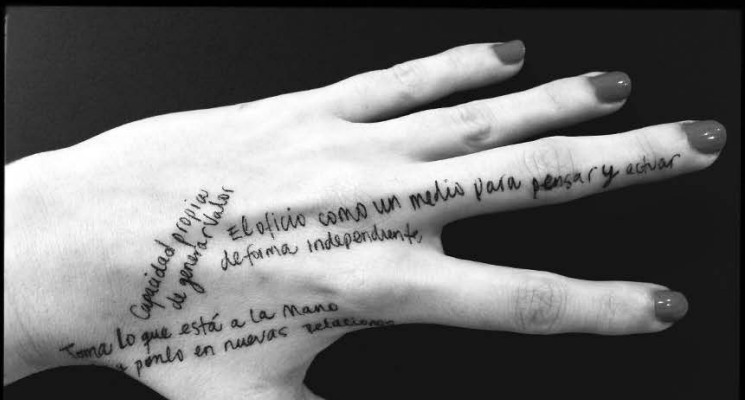 Capacidad propia
de generar Valor
El oficio como un medio para pensar y actuar
de forma independiente
Toma lo que está a la mano
y ponlo en nuevas relaciones